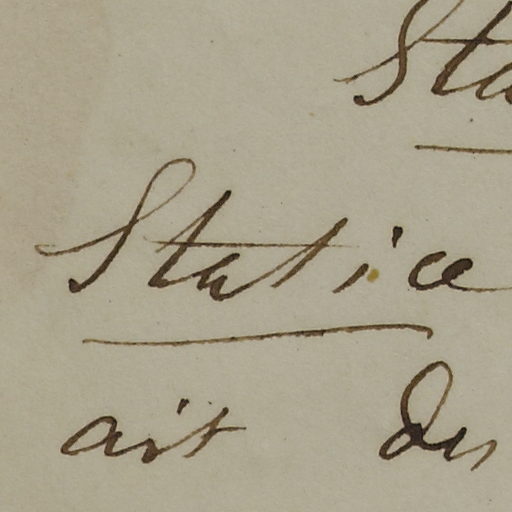 Sta
Statice
ait des